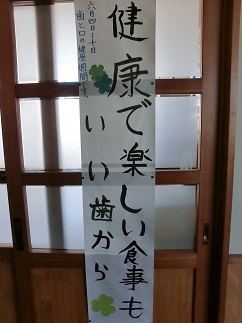 健康で楽しい食事も
いい歯から
六月四日～十日
歯と口の健康週間です。